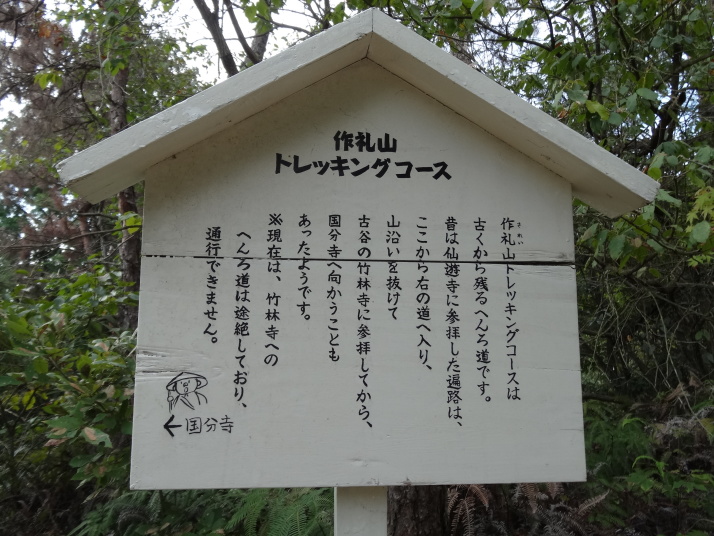 作礼山
トレッキングコース
作礼山トレッキングコースは
されい
古くから残るへんろ道です。
昔は仙遊寺に参拝した遍路は、
ここから右の道へ入り、
山沿いを抜けて
古谷の竹林寺に参拝してから、
国分寺へ向かうことも
あったようです。
※現在は、竹林寺への
へんろ道は途絶しており、
通行できません。
←国分寺